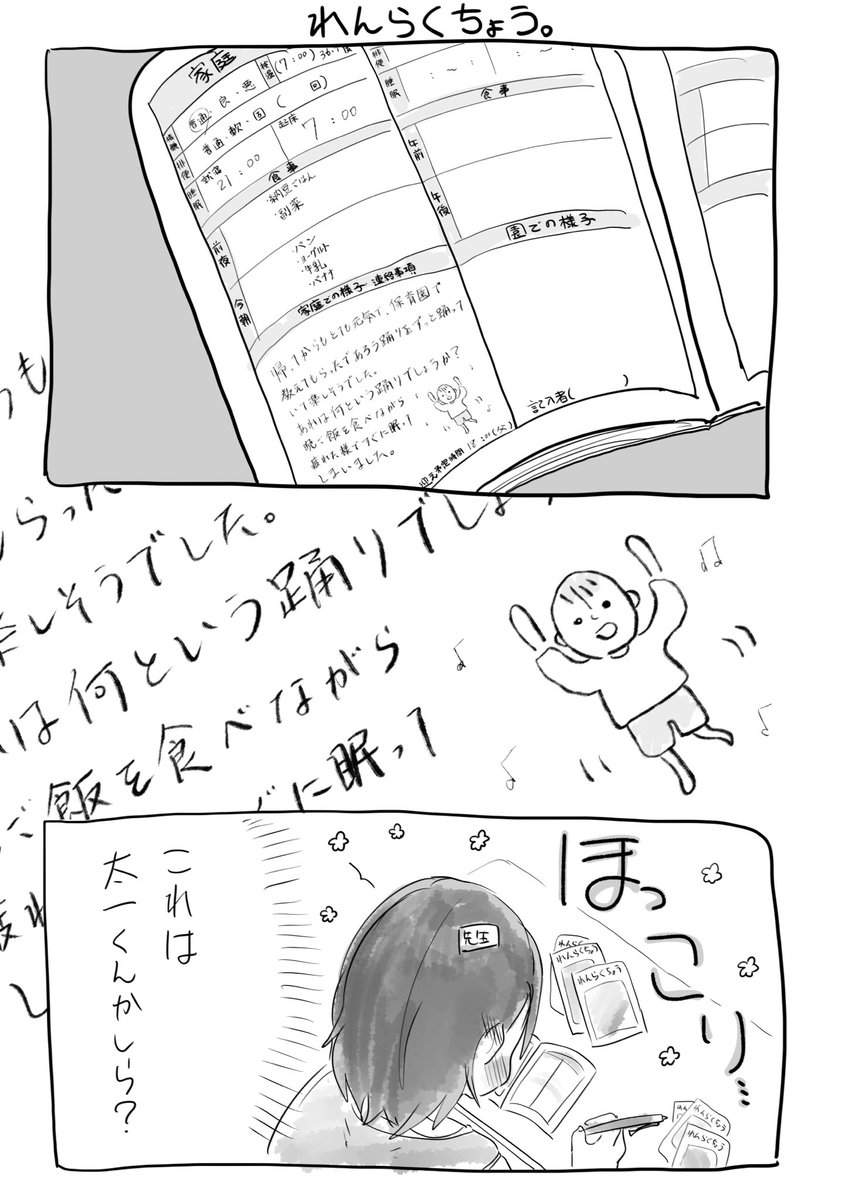 れんらくちょう。
家庭
検温
(7:00) 36.7度
機嫌
普通・良・悪
排便
普通・軟・固(　回)
睡眠
就寝
21:00
起床
7:00
食事
前夜
・納豆ごはん
・副菜
今朝
・パン
・ヨーグルト
・牛乳
・バナナ
家庭での様子・連絡事項
帰ってからもとても元気で、保育園で
教えてもらったであろう踊りをずっと踊って
いて楽しそうでした。
あれは何という踊りでしょうか?
晩ご飯を食べながら
疲れた様ですぐに眠って
しまいました。
排便
睡眠
:〜:
:〜:
食事
午前
午後
園での様子
記入者(　)
つも
らった
楽しそうでした。
は何という踊りでしょ
ご飯を食べながら
疲れ
ぐに眠って
し
ほっこり…
先生
れんらくちょう
れんらくちょう
れんらくちょう
れんらくちょう
れんらくちょう
これは
太一くんかしら?